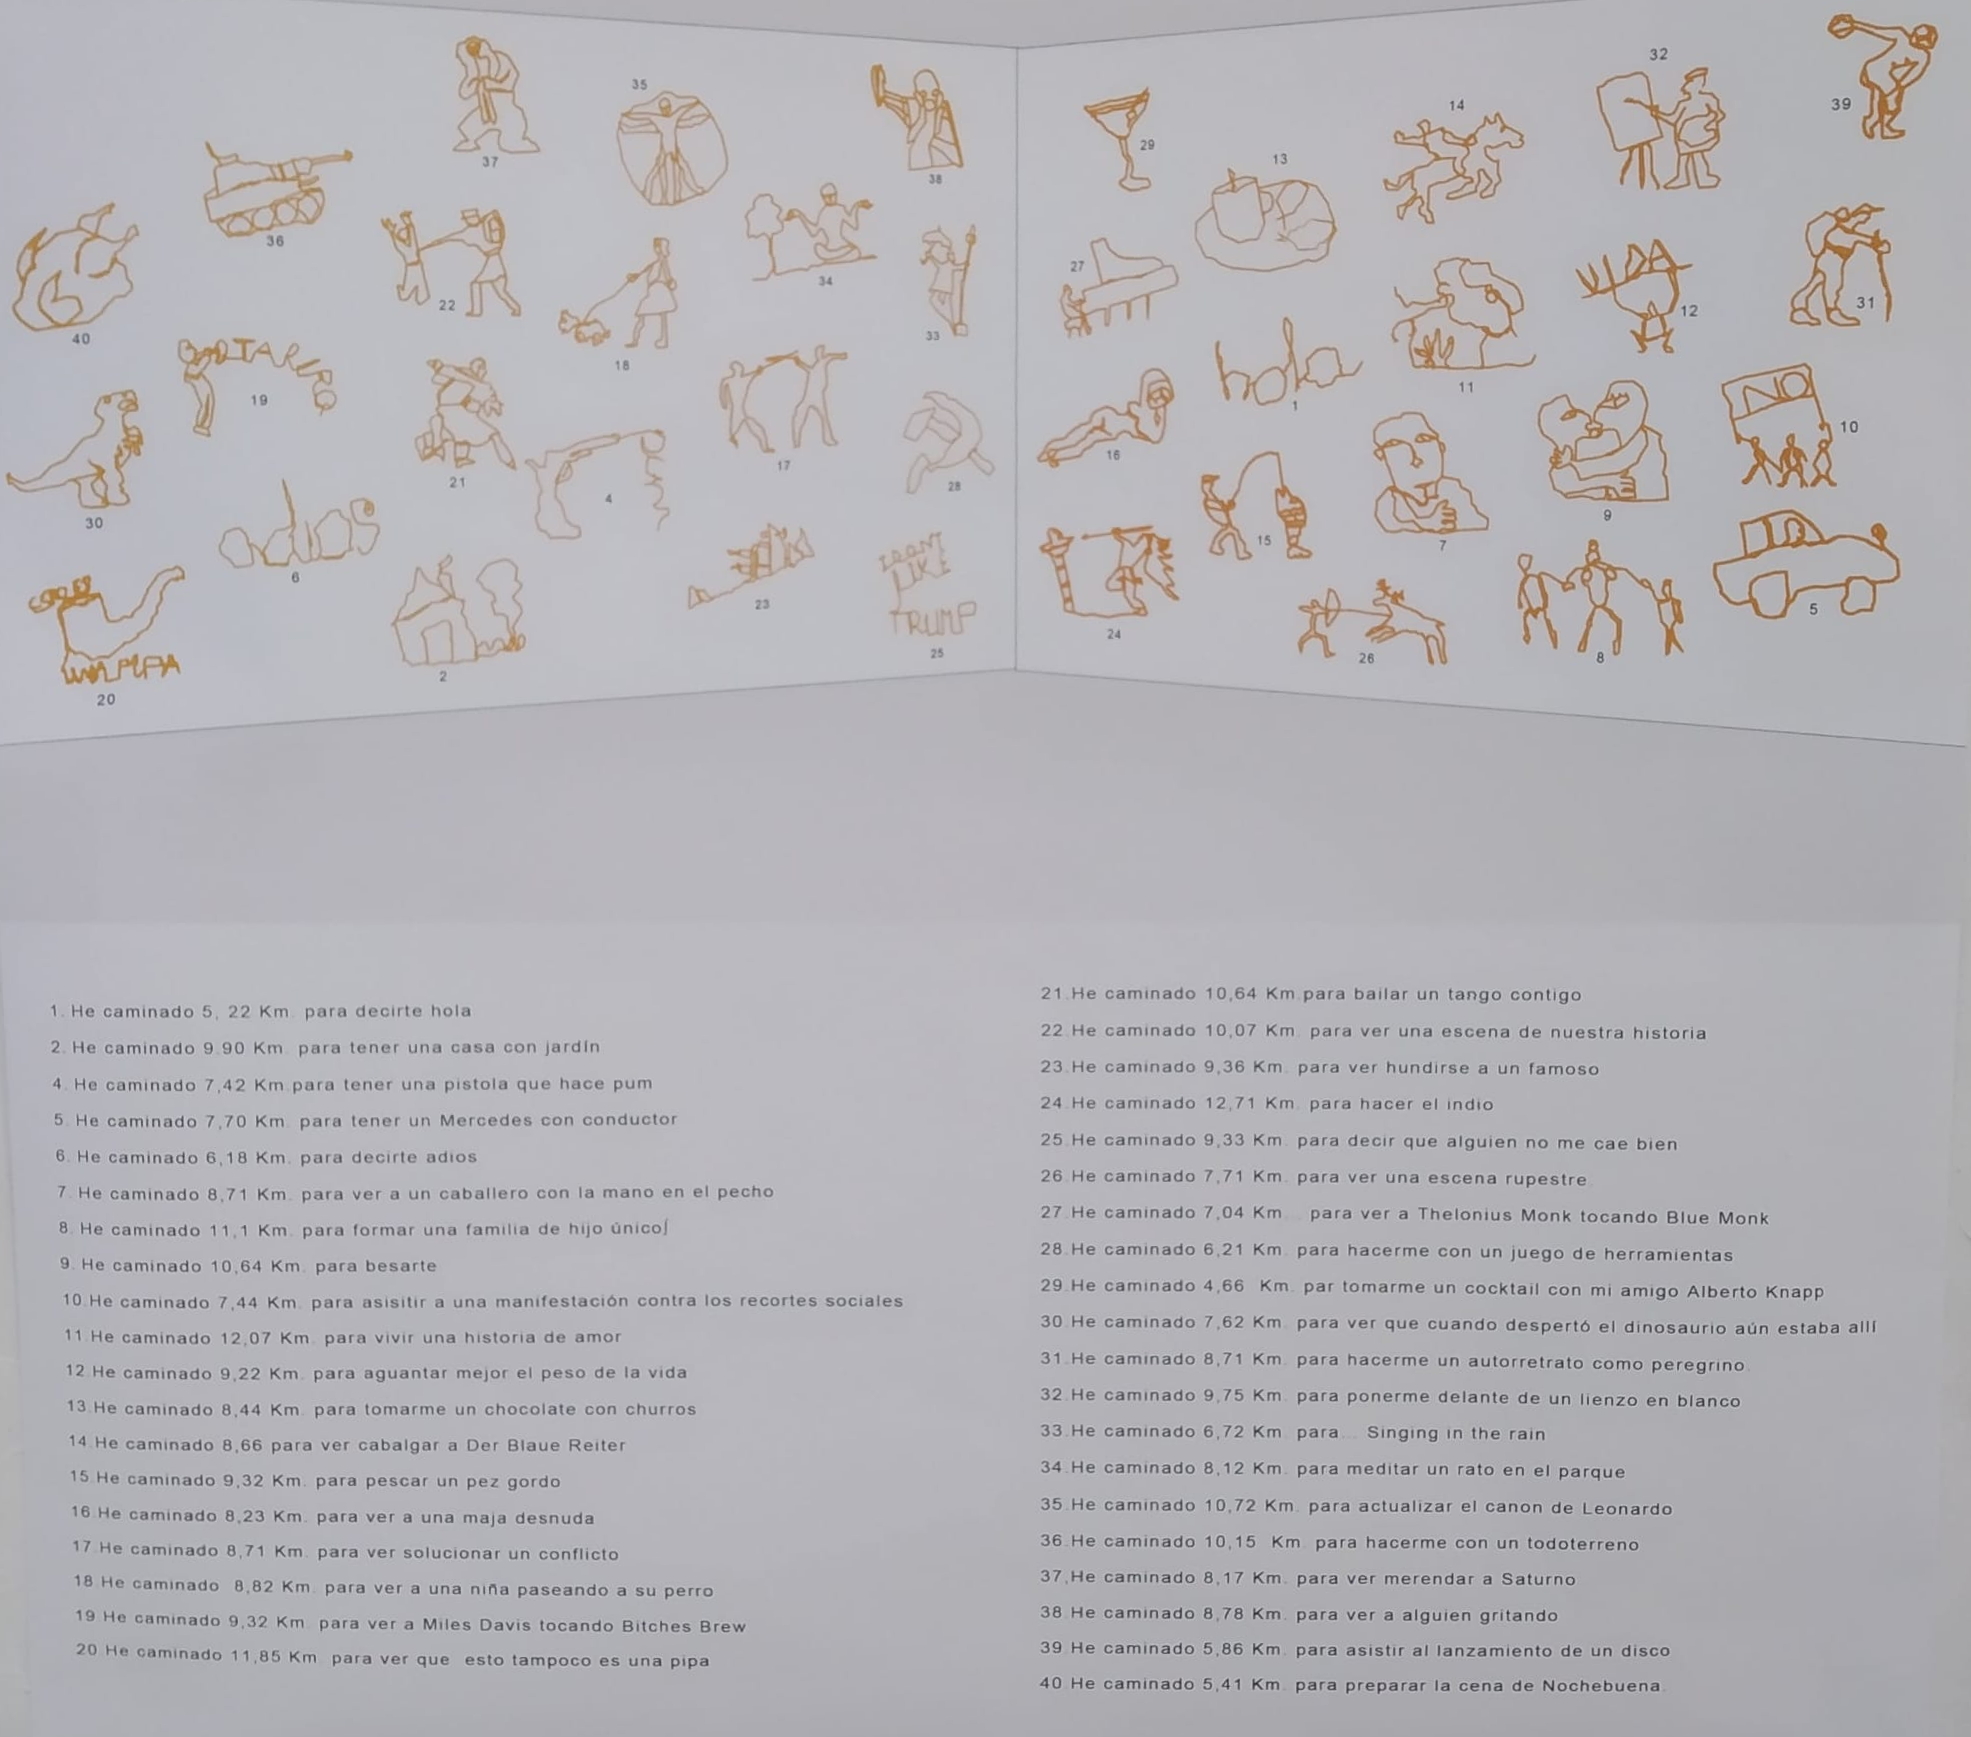 37
35
38
36
40
22
18
34
33
19
21
4
17
28
30
adios
6
I DONT
LIKE
TRUMP
23
25
UNA PIPA
20
2
32
29
14
39
13
27
hola
1
11
VIDA
12
31
16
NO
10
9
7
15
24
26
8
5
1. He caminado 5, 22 Km. para decirte hola
2. He caminado 9.90 Km. para tener una casa con jardín
4. He caminado 7,42 Km.para tener una pistola que hace pum
5. He caminado 7,70 Km. para tener un Mercedes con conductor
6. He caminado 6,18 Km. para decirte adios
7. He caminado 8,71 Km. para ver a un caballero con la mano en el pecho
8. He caminado 11,1 Km. para formar una familia de hijo único
9. He caminado 10,64 Km. para besarte
10.He caminado 7,44 Km. para asisitir a una manifestación contra los recortes sociales
11.He caminado 12,07 Km. para vivir una historia de amor
12.He caminado 9,22 Km. para aguantar mejor el peso de la vida
13.He caminado 8,44 Km. para tomarme un chocolate con churros
14.He caminado 8,66 para ver cabalgar a Der Blaue Reiter
15.He caminado 9,32 Km. para pescar un pez gordo
16.He caminado 8,23 Km. para ver a una maja desnuda
17.He caminado 8,71 Km. para ver solucionar un conflicto
18.He caminado 8,82 Km. para ver a una niña paseando a su perro
19.He caminado 9,32 Km. para ver a Miles Davis tocando Bitches Brew
20.He caminado 11,85 Km. para ver que esto tampoco es una pipa
21.He caminado 10,64 Km.para bailar un tango contigo
22.He caminado 10,07 Km. para ver una escena de nuestra historia
23.He caminado 9,36 Km. para ver hundirse a un famoso
24.He caminado 12,71 Km. para hacer el indio
25.He caminado 9,33 Km. para decir que alguien no me cae bien
26.He caminado 7,71 Km. para ver una escena rupestre.
27.He caminado 7,04 Km... para ver a Thelonius Monk tocando Blue Monk
28.He caminado 6,21 Km. para hacerme con un juego de herramientas
29.He caminado 4,66 Km. par tomarme un cocktail con mi amigo Alberto Knapp
30.He caminado 7,62 Km. para ver que cuando despertó el dinosaurio aún estaba allí
31.He caminado 8,71 Km. para hacerme un autorretrato como peregrino.
32.He caminado 9,75 Km. para ponerme delante de un lienzo en blanco
33.He caminado 6,72 Km. para... Singing in the rain
34.He caminado 8,12 Km. para meditar un rato en el parque
35.He caminado 10,72 Km. para actualizar el canon de Leonardo
36.He caminado 10,15 Km. para hacerme con un todoterreno
37,He caminado 8,17 Km. para ver merendar a Saturno
38.He caminado 8,78 Km. para ver a alguien gritando
39.He caminado 5,86 Km. para asistir al lanzamiento de un disco
40.He caminado 5,41 Km. para preparar la cena de Nochebuena.